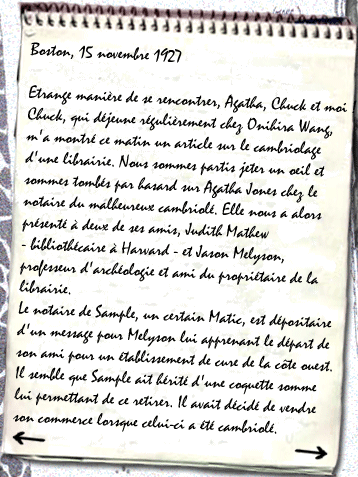 Boston, 15 novembre 1927
Etrange manière de se rencontrer, Agatha, Chuck et moi
Chuck, qui déjeune régulièrement chez Onihira Wang,
m'a montré ce matin un article sur le cambriolage
d'une librairie. Nous sommes partis jeter un oeil et
sommes tombés par hasard sur Agatha Jones chez le
notaire du malheureux cambriolé. Elle nous a alors
présenté à deux de ses amis, Judith Mathew
- bibliothécaire à Harward - et Jason Melyson,
professeur d'archéologie et ami du propriétaire de la
librairie.
Le notaire de Sample, un certain Matic, est dépositaire
d'un message pour Melyson lui apprenant le départ de
son ami pour un établissement de cure de la côte ouest.
Il semble que Sample ait hérité d'une coquette somme
lui permettant de ce retirer. Il avait décidé de vendre
son commerce lorsque celui-ci a été cambriolé.